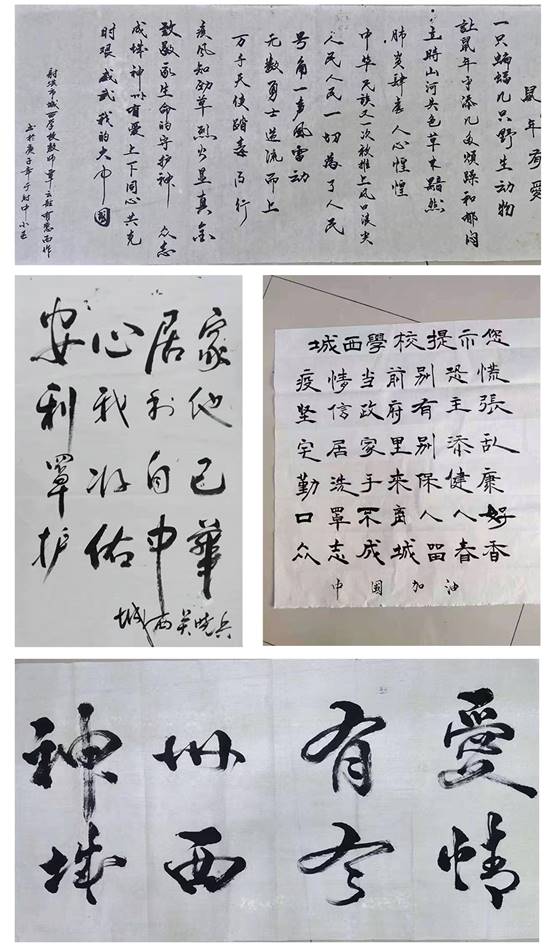 鼠年有愛
一只蝙蝠几只野生动物
让鼠年平添几多烦躁和郁闷
一時山河失色草木黯然
肺炎肆虐人心惶惶
中华民族又一次被推上风口浪尖
人民人民一切為了人民
号角一声風雷动
无数勇士逆流而上
万千天使踏毒而行
疾风知劲草烈火显真金
致敬生命的守护神 众志
成城神州有爱上下同心共克
时艰威武我的大中國
射洪市城西学校教师覃云超有感而作
书于庚子年于射中小区
安心居家
利我利他
罩自己
护佑中華
城西吴晓兵
城西學校提示您
疫情当前别恐慌
坚信政府有主張
宅居家里别添乱
勤洗手来保健康
口罩不离人人好
众志成城留春香
中国加油
神州有愛
城西有情